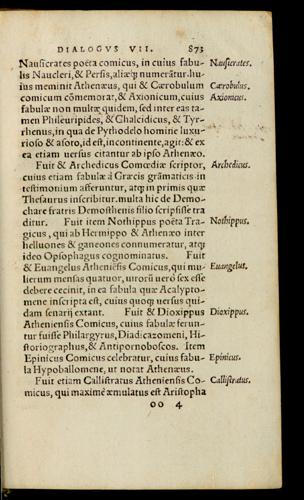 DIALOGVS VII. 873
Nausicrates poëta comicus, in cuius fabu- Nausicrates.
lis Naucleri, & Persis, aliæq; numerãtur. hu-
ius meminit Athenæus, qui & Cærobulum Cærobulus.
comicum cõmemorat, & Axionicum, cuius Axionicus.
fabulæ non multæ quidem, sed inter eas ta-
men Phileuripides, & Chalcidicus, & Tyr-
rhenus, in qua de Pythodelo homine luxu-
rioso & asoto, id est, incontinente, agit: & ex
ea etiam uersus citantur ab ipso Athenæo.
Fuit & Archedicus Comœdiæ scriptor, Archedicus.
cuius etiam fabulæ à Græcis grãmaticis in
testimonium afferuntur, atq; in primis quæ
Thesaurus inscribitur. multa hic de Demo-
chare fratris Demosthenis filio scripsisse tra
ditur. Fuit item Nothippus poëta Tra- Nothippus.
gicus, qui ab Hermippo & Athenæo inter
helluones & ganeones connumeratur, atq;
ideo Opsophagus cognominatus. Fuit
& Euangelus Atheniẽsis Comicus, qui mu- Euangelus.
lierum mensas quatuor, uirorũ uerò sex esse
debere cecinit, in ea fabula quæ Acalypto-
mene inscripta est, cuius quoq; uersus qui-
dam senarij extant. Fuit & Dioxippus Dioxippus.
Atheniensis Comicus, cuius fabulæ ferun-
tur fuisse Philargyrus, Diadicazomeni, Hi-
storiographus, & Antipornoboscos. Item
Epinicus Comicus celebratur, cuius fabu- Epinicus.
la Hypoballomene, ut notat Athenæus.
Fuit etiam Callistratus Atheniensis Co- Callistratus.
micus, qui maximè æmulatus est Aristopha
OO 4